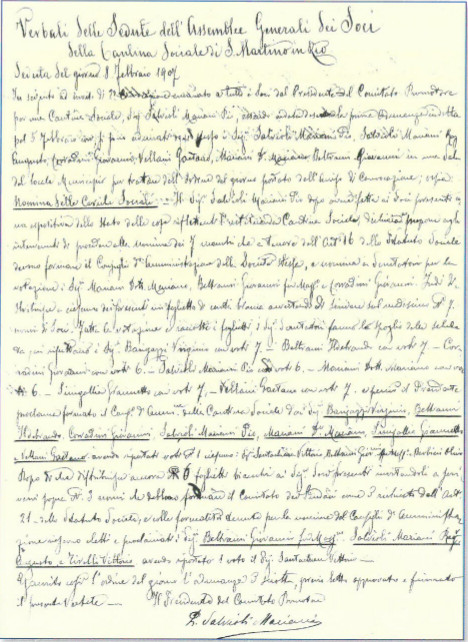 Verbali delle Sedute dell'Assemblee Generali dei Soci
della Cantina Sociale di S. Martino in Rio
Seduta del giorno 8 Febbraio 1907
In seguito ad invito di diramato a tutti i Soci dal Presidente del Comitato Promotore
per una Cantina Sociale, Sig. Salvioli Mariani Pio, essendo andata deserta la prima
pel 5 Febbraio si sono adunati i Sigg. Salvioli Mariani Pio, Salvioli Mariani Rag.
Augusto, Corradini Giovanni, Vellani Gaetano, Mariani Dr. Mariano, Beltrami Giovanni in una Sala
del locale Municipio per trattare dell'ordine del giorno portato dall'avviso di Convocazione; ossia
Nomina delle Cariche Sociali. Il Sig. Salvioli Mariani Pio dopo aver fatta ai Soci presenti
un'esposizione dello Stato delle cose riflettenti l'istituenda Cantina Sociale, propone agli
intervenuti di procedere alla nomina dei 7 membri che a tenore dell'Art. 16 dello Statuto Sociale
devono formare il Consiglio d'Amministrazione della Società stessa, e nomina a Scrutatori per la
votazione i Sig. Mariani Dott. Mariano, Beltrami Giovanni fu e Corradini Giovanni. Indi
distribuisce a ciascuno dei presenti un foglietto di carta bianca avvertendo di scrivere sul medesimo N. 7
nomi di Soci. Fatta la votazione e raccolti i foglietti i Sig. Scrutatori fanno lo spoglio delle schede
da cui risultano i Sig. Bangazzi Virginio con voti 7. – Beltrami Ildebrando con voti 7 – Cor-
radini Giovanni con voti 6. – Salvioli Mariani Pio con voti 6. – Mariani Dott. Mariano con voti
6. – Giannetto con voti 7, – Vellani Gaetano con voti 7. – e perciò il Presidente
proclama formato il Consig. d'Ammin. della Cantina Sociale dai Sig. Bangazzi Virginio, Beltrami
Ildebrando, Corradini Giovanni, Salvioli Mariani Pio, Mariani Dr. Mariano, Giannetto
e Vellani Gaetano, avendo riportato voti 1 ciascuno i Sig. Vittorio, Beltrami Giov. Barbieri
Dopo di che distribuisce ancora 6 foglietti bianchi ai Sig. Soci presenti invitandoli a scri-
vervi sopra N. 3 nomi che debbono formare il Comitato dei Sindaci come è richiesto dall'Art.
21 dello Statuto Sociale, e colle formalità tenute per la nomina del Consiglio d'Amministra-
zione vengono eletti e proclamati i Sig. Beltrami Giovanni fu Salvioli Mariani Rag.
Augusto, e Tirelli Vittorio avendo riportato 1 voto il Sig. Vittorio –
Esaurito così l'ordine del giorno l'adunanza è sciolta, previa lettura approvato e firmato
il presente Verbale –
Il Presidente
del Comitato Promotore
P. Salvioli Mariani